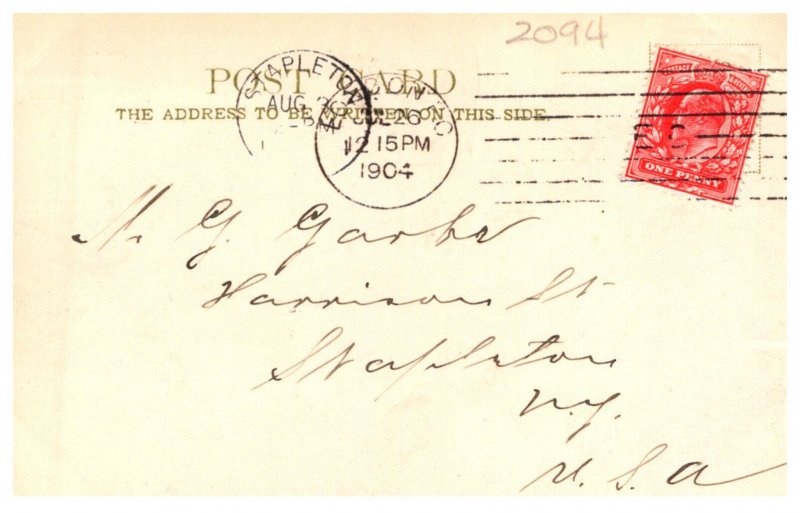 2094
POST CARD
THE ADDRESS TO BE WRITTEN ON THIS SIDE.
STAPLETON
AUG
LONDON
JUL 26
12 15PM
1904
ONE PENNY
M. G. Garbe
Harrison St
Stapleton
N.Y.
U.S.A